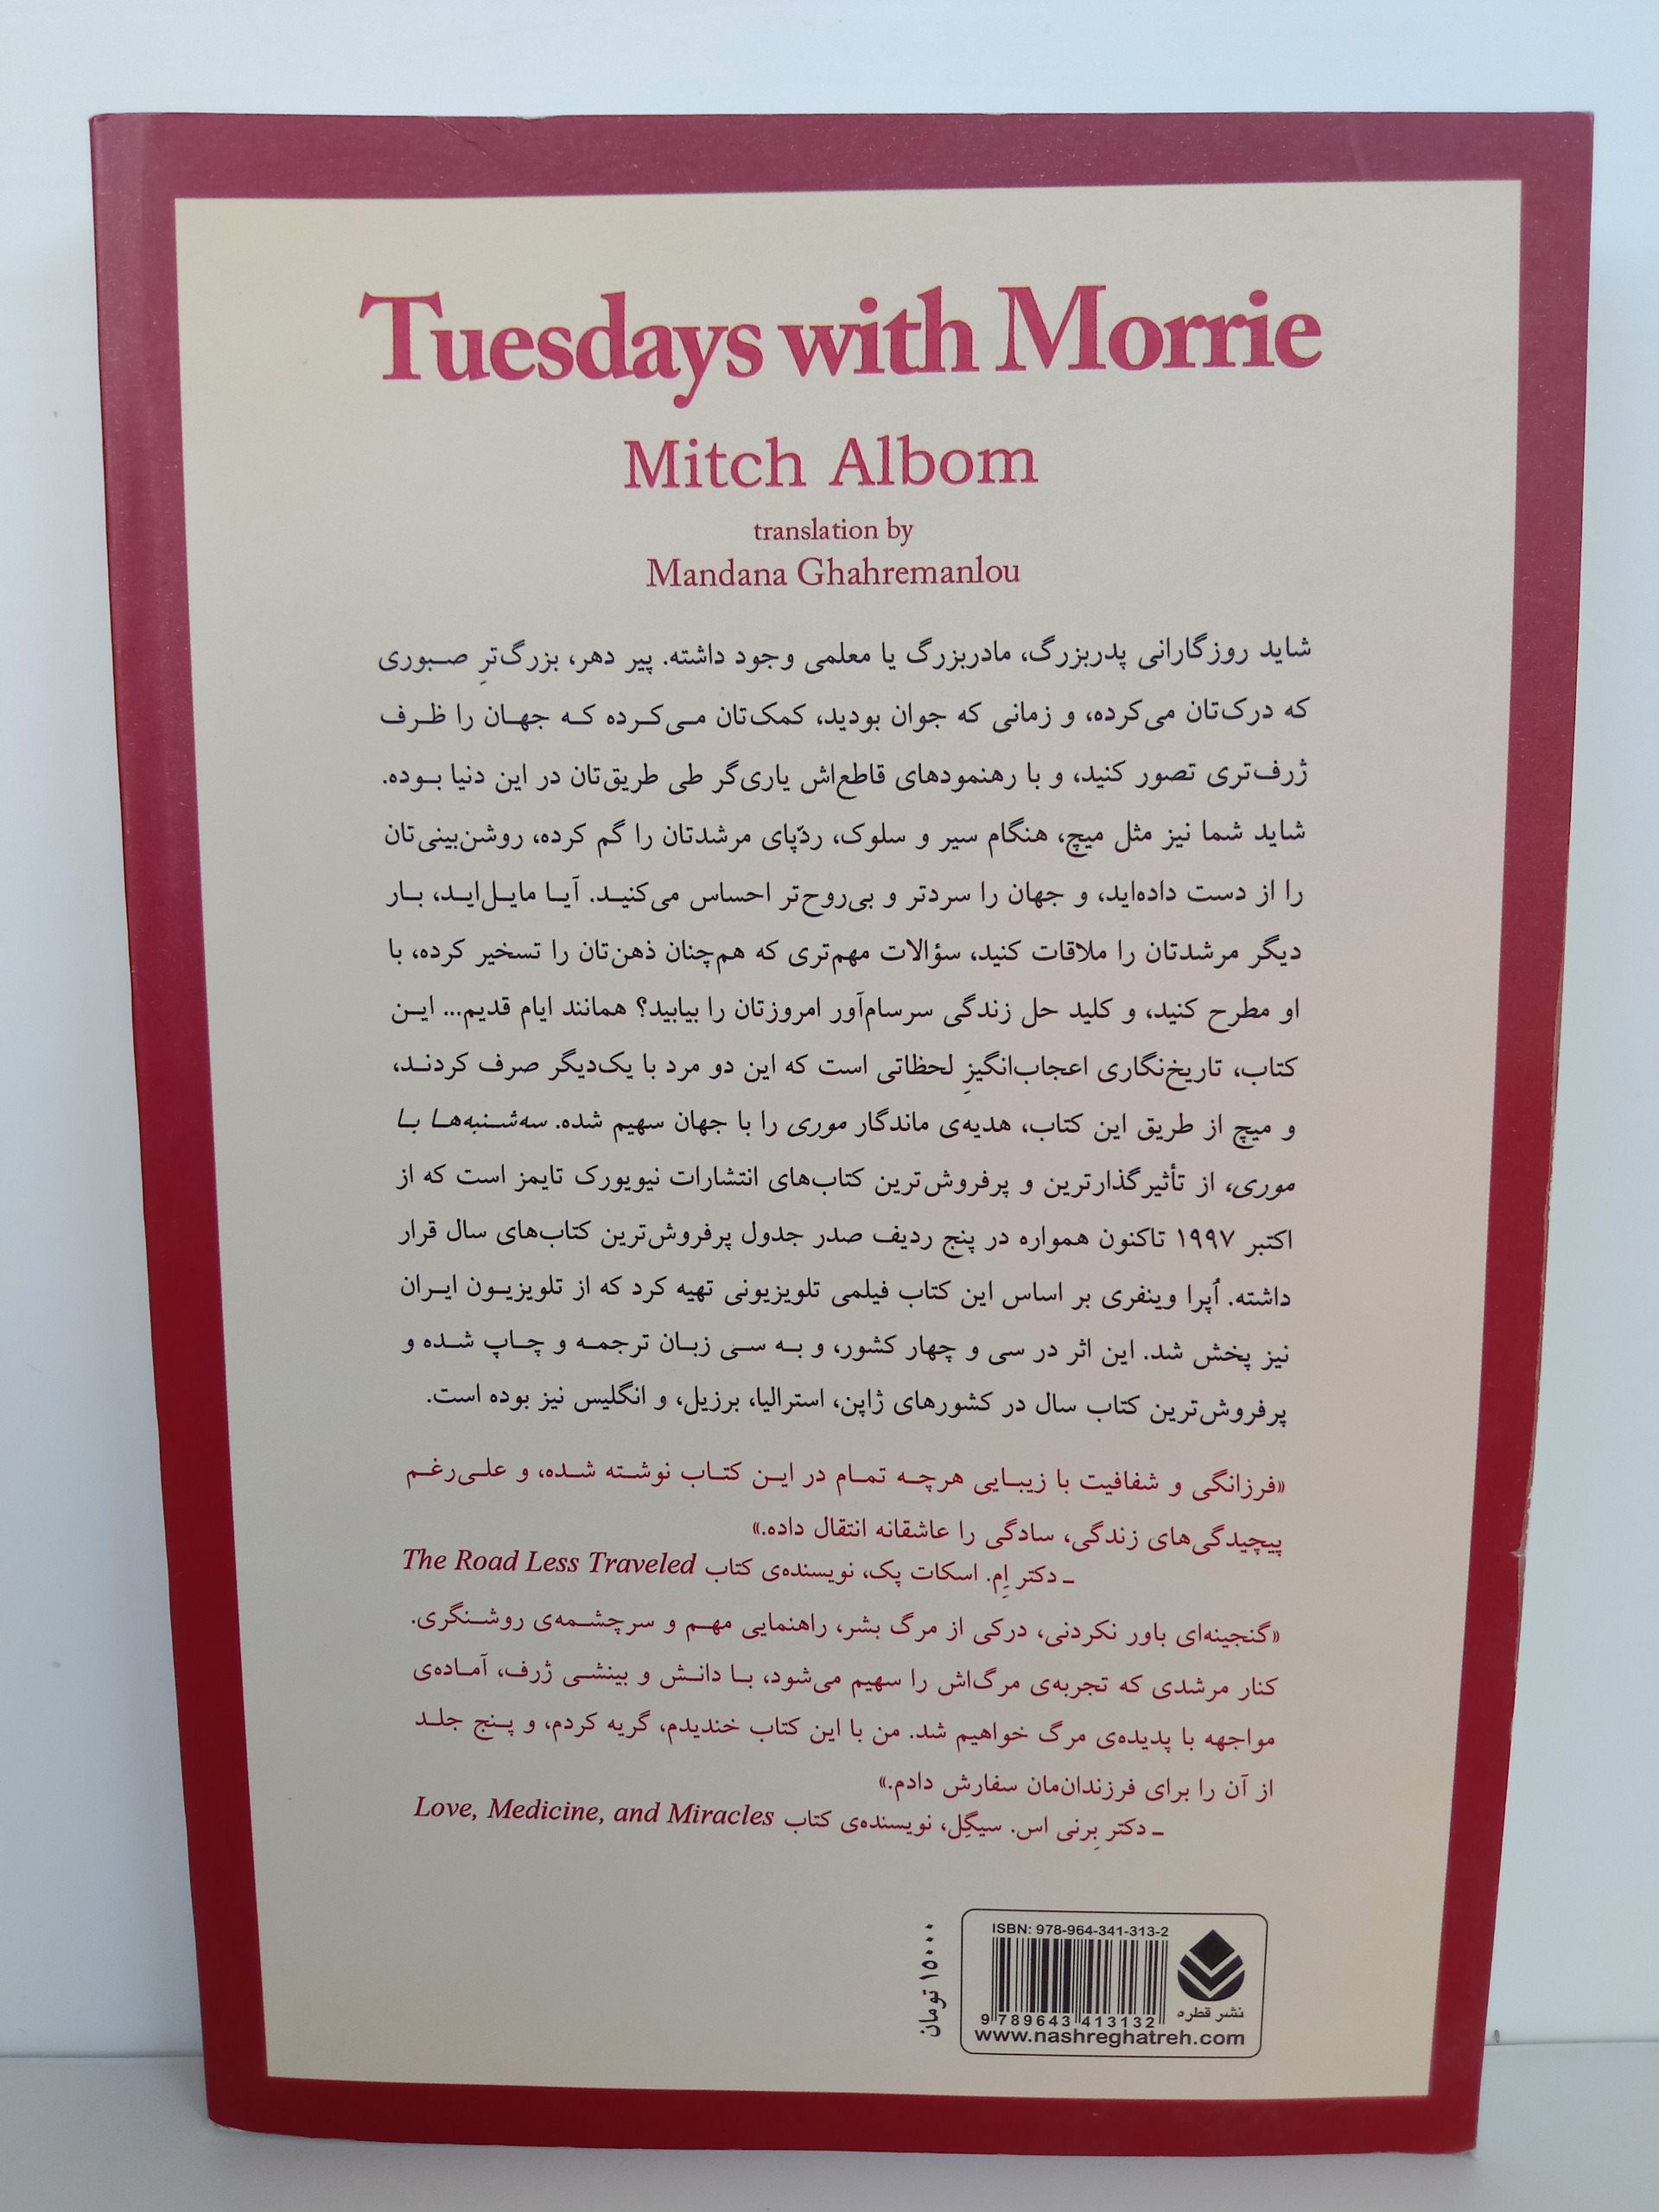 Tuesdays with Morrie
Mitch Albom
translation by
Mandana Ghahremanlou
شاید روزگارانی پدربزرگ، مادربزرگ یا معلمی وجود داشته. پیر دهر، بزرگ‌ترِ صبوری
که درک‌تان می‌کرده، و زمانی که جوان بودید، کمک‌تان می‌کرده که جهان را ظرف
ژرف‌تری تصور کنید، و با رهنمودهای قاطع‌اش یاری‌گر طی طریق‌تان در این دنیا بوده.
شاید شما نیز مثل میچ، هنگام سیر و سلوک، ردّپای مرشدتان را گم کرده، روشن‌بینی‌تان
را از دست داده‌اید، و جهان را سردتر و بی‌روح‌تر احساس می‌کنید. آیا مایل‌اید، بار
دیگر مرشدتان را ملاقات کنید، سؤالات مهم‌تری که هم‌چنان ذهن‌تان را تسخیر کرده، با
او مطرح کنید، و کلید حل زندگی سرسام‌آور امروزتان را بیابید؟ همانند ایام قدیم... این
کتاب، تاریخ‌نگاری اعجاب‌انگیزِ لحظاتی است که این دو مرد با یک‌دیگر صرف کردند،
و میچ از طریق این کتاب، هدیه‌ی ماندگار موری را با جهان سهیم شده. سه‌شنبه‌ها با
موری، از تأثیرگذارترین و پرفروش‌ترین کتاب‌های انتشارات نیویورک تایمز است که از
اکتبر ۱۹۹۷ تاکنون همواره در پنج ردیف صدر جدول پرفروش‌ترین کتاب‌های سال قرار
داشته. اُپرا وینفری بر اساس این کتاب فیلمی تلویزیونی تهیه کرد که از تلویزیون ایران
نیز پخش شد. این اثر در سی و چهار کشور، و به سی زبان ترجمه و چاپ شده و
پرفروش‌ترین کتاب سال در کشورهای ژاپن، استرالیا، برزیل، و انگلیس نیز بوده است.
«فرزانگی و شفافیت با زیبایی هرچه تمام در این کتاب نوشته شده، و علی‌رغم
پیچیدگی‌های زندگی، سادگی را عاشقانه انتقال داده.»
ـ دکتر اِم. اسکات پک، نویسنده‌ی کتاب The Road Less Traveled
«گنجینه‌ای باور نکردنی، درکی از مرگ بشر، راهنمایی مهم و سرچشمه‌ی روشنگری.
کنار مرشدی که تجربه‌ی مرگ‌اش را سهیم می‌شود، با دانش و بینشی ژرف، آماده‌ی
مواجهه با پدیده‌ی مرگ خواهیم شد. من با این کتاب خندیدم، گریه کردم، و پنج جلد
از آن را برای فرزندان‌مان سفارش دادم.»
ـ دکتر بِرنی اس. سیگِل، نویسنده‌ی کتاب Love, Medicine, and Miracles
۱۵۰۰۰ تومان
ISBN: 978-964-341-313-2
9 789643 413132
نشر قطره
www.nashreghatreh.com